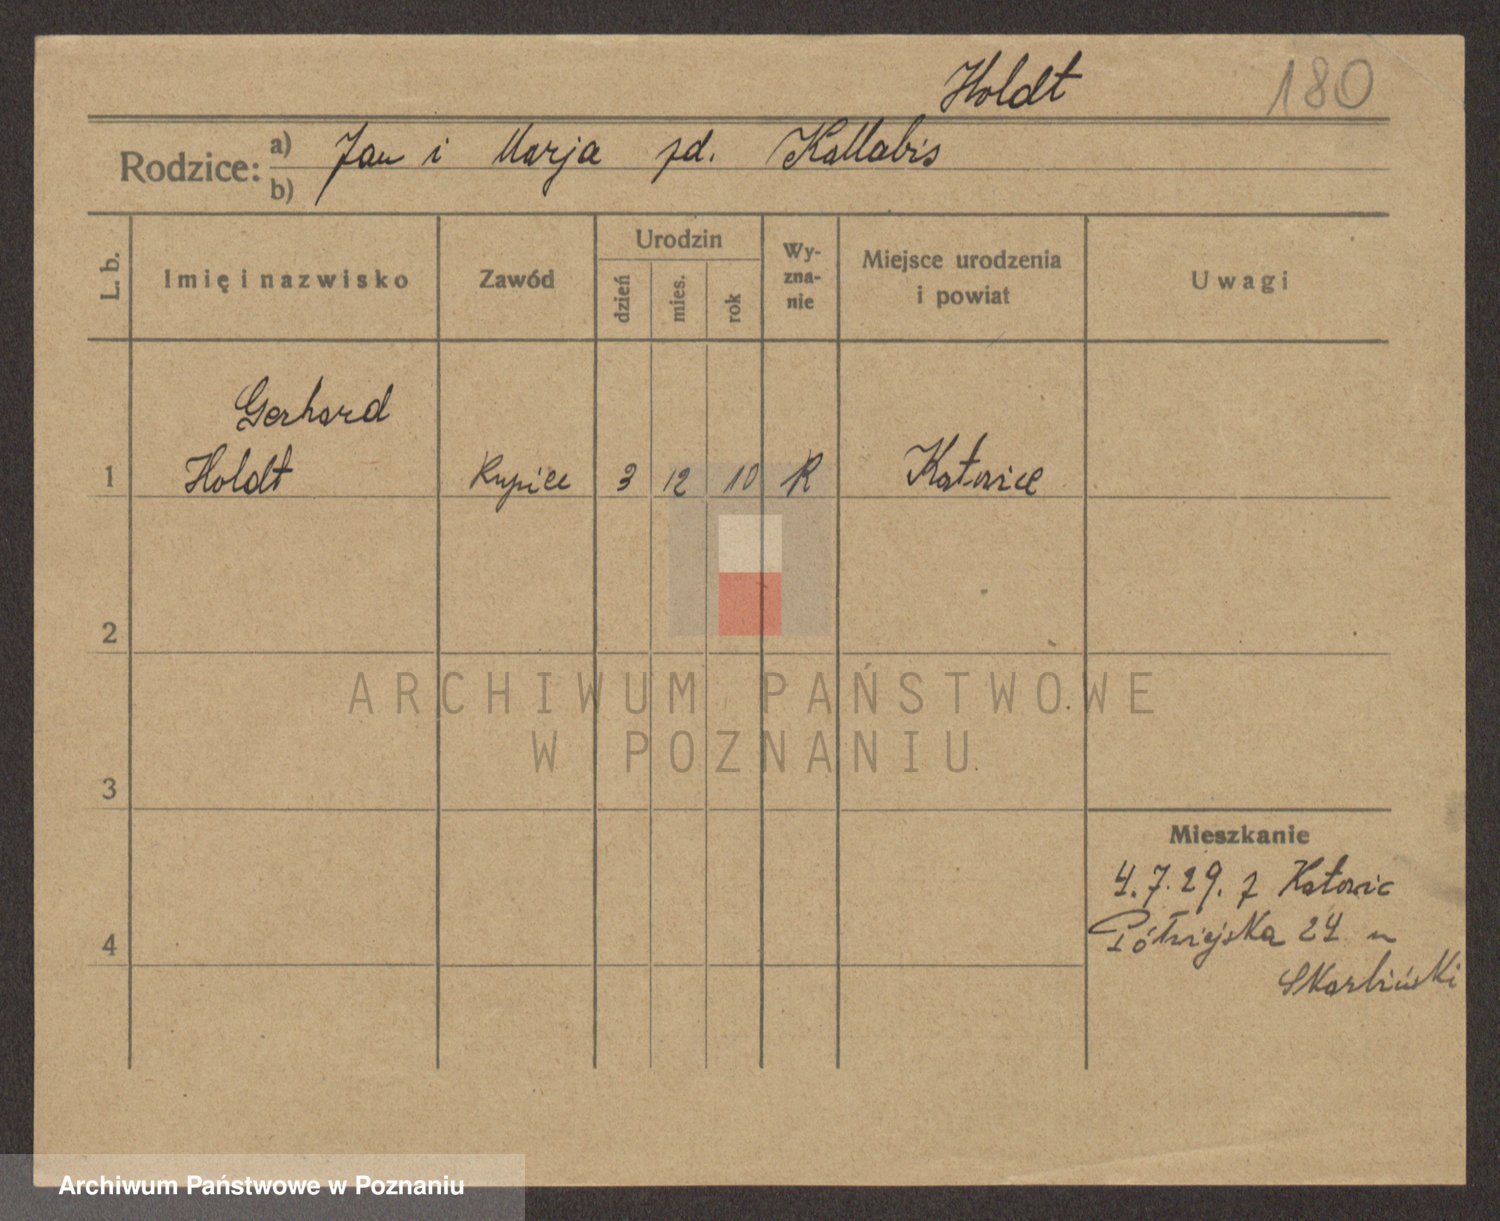 Holdt 180
Rodzice: a) Jan i Marja zd. Kallabis
b)
L. b. Imię i nazwisko Zawód Urodzin dzień mies. rok Wy-zna-nie Miejsce urodzenia i powiat Uwagi
Gerhard
1 Holdt Kupiec 3 12 10 R Katowice
2
ARCHIWUM PAŃSTWOWE
W POZNANIU
3
Mieszkanie
4.7.29. z Katowic
4 Półwiejska 24 u
Skarbiński
Archiwum Państwowe w Poznaniu